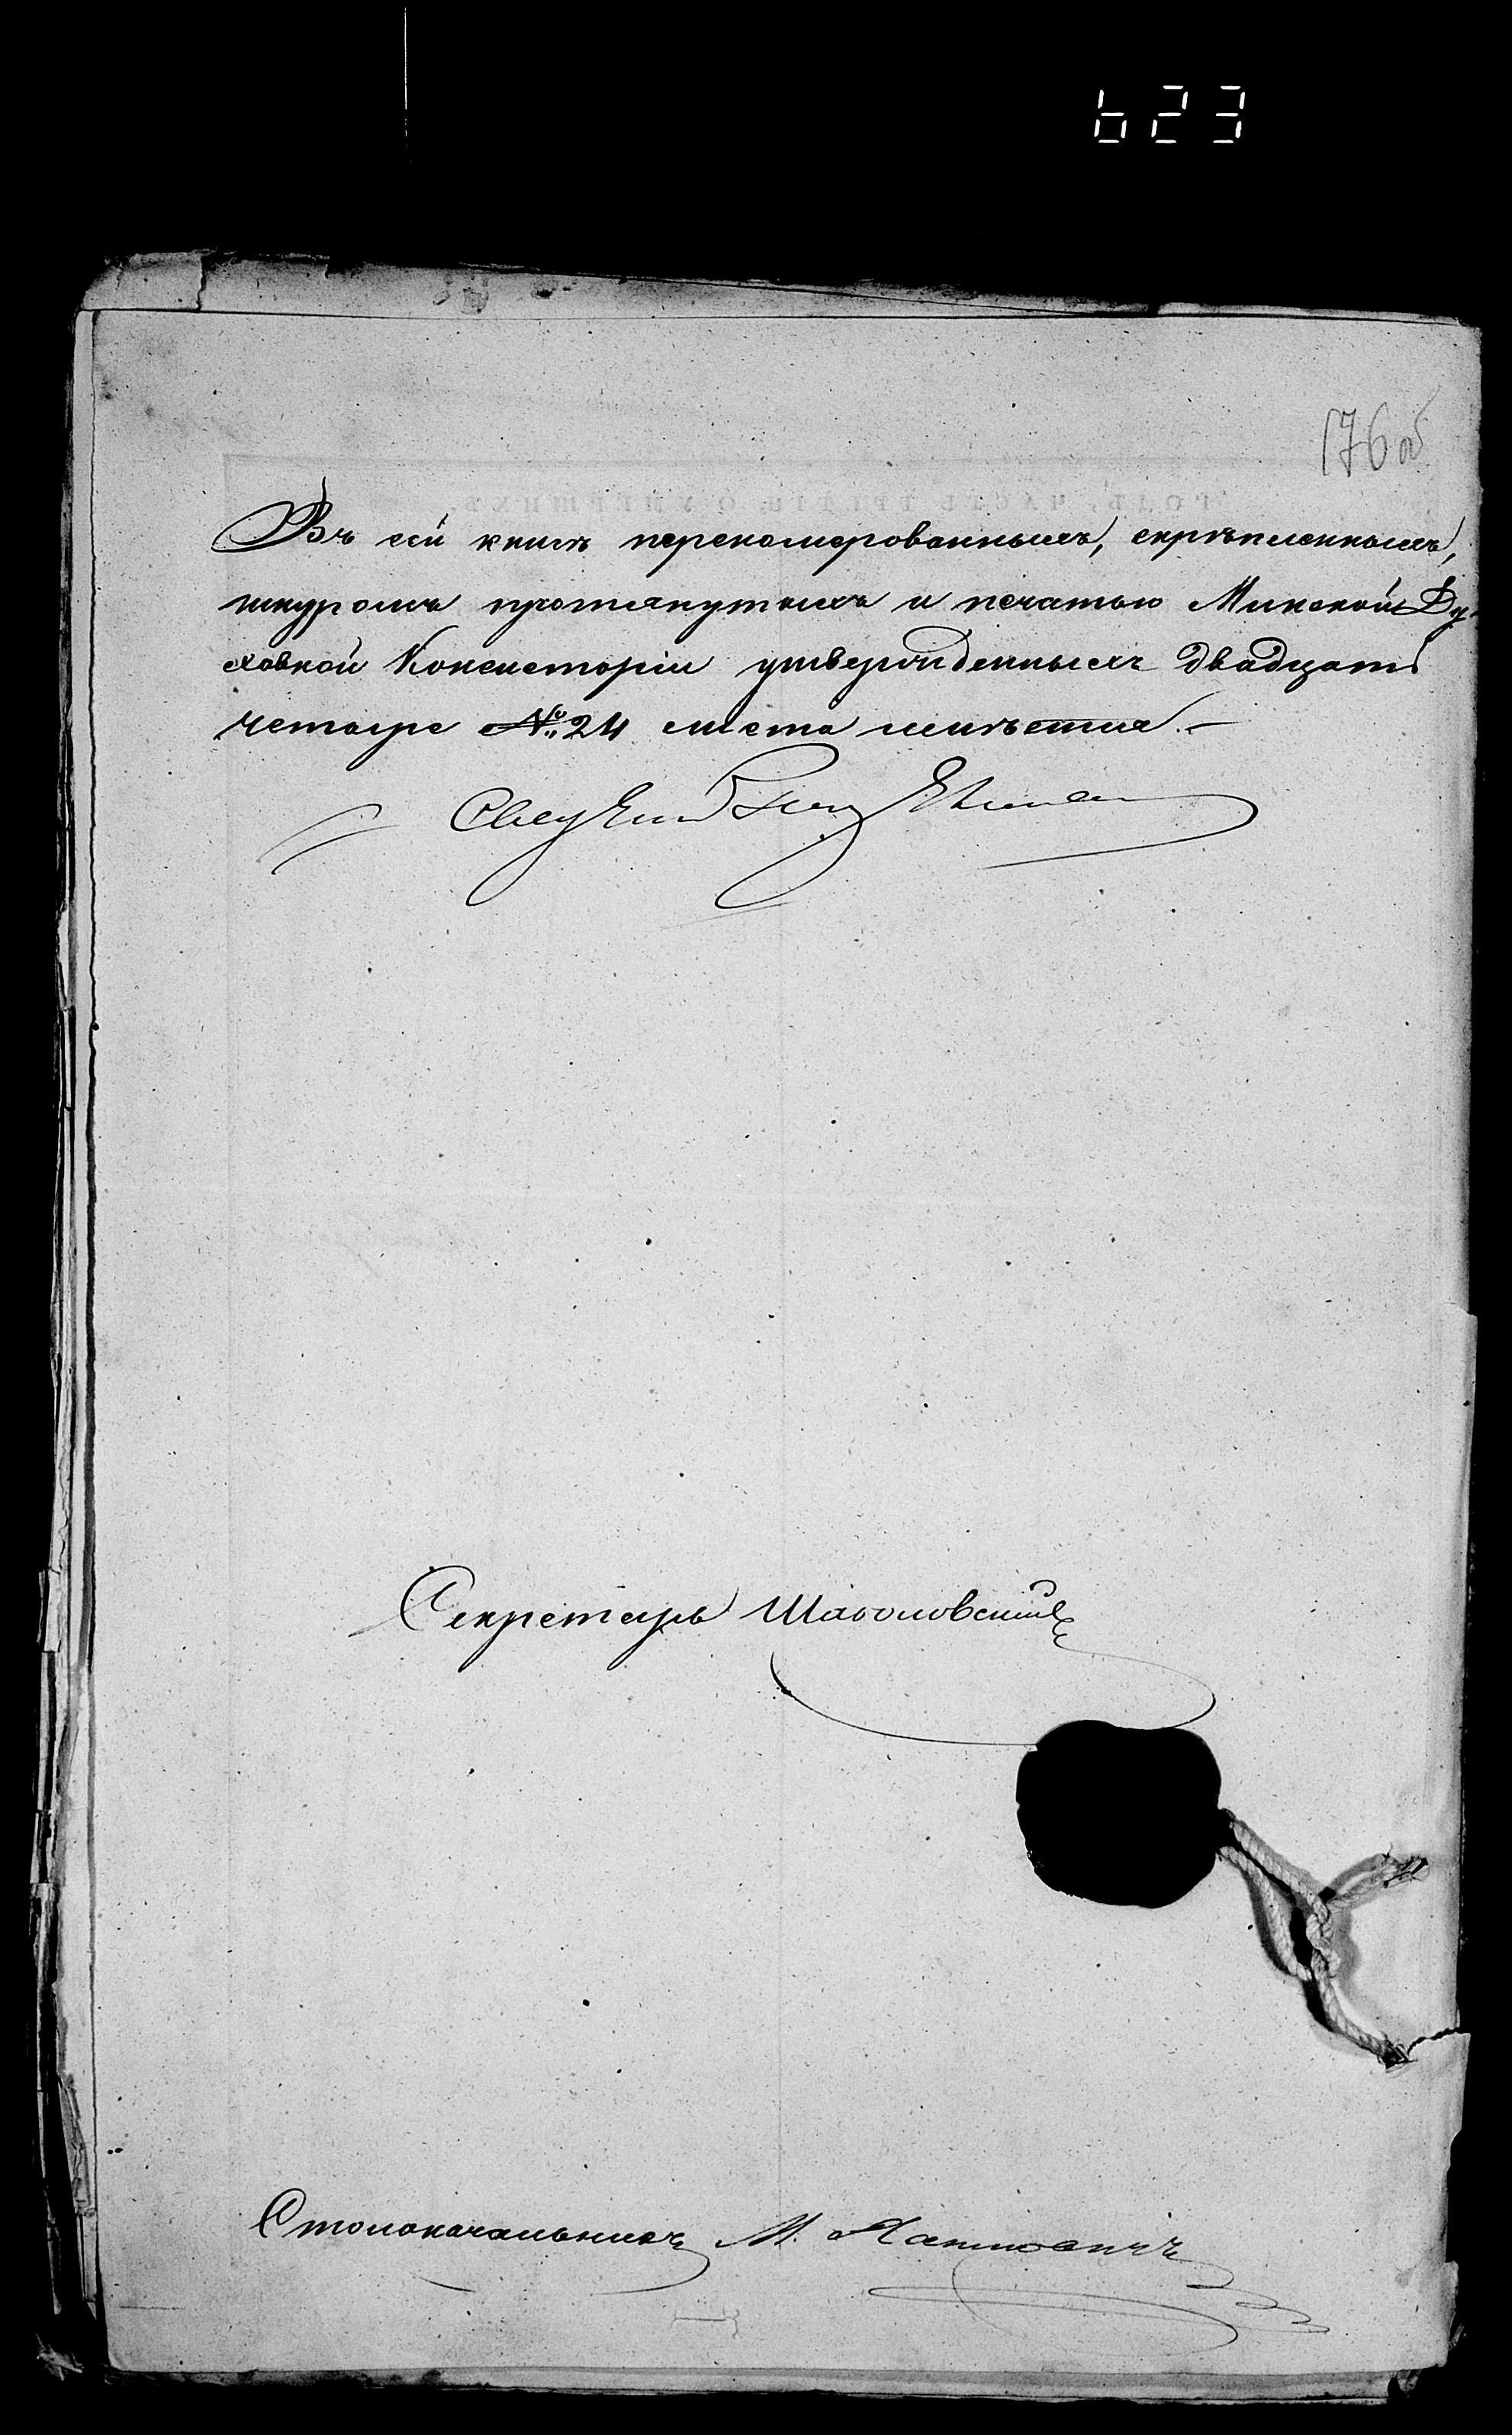 623
176об
Въ сей книгѣ перекомерованныхъ, скрѣпленныхъ,
шнуромъ протянутыхъ и печатью Минской Ду-
ховной Консисторіи утвержденныхъ двадцать
четыре №24 листа имѣется.—
Секретарь
Столоначальникъ М.